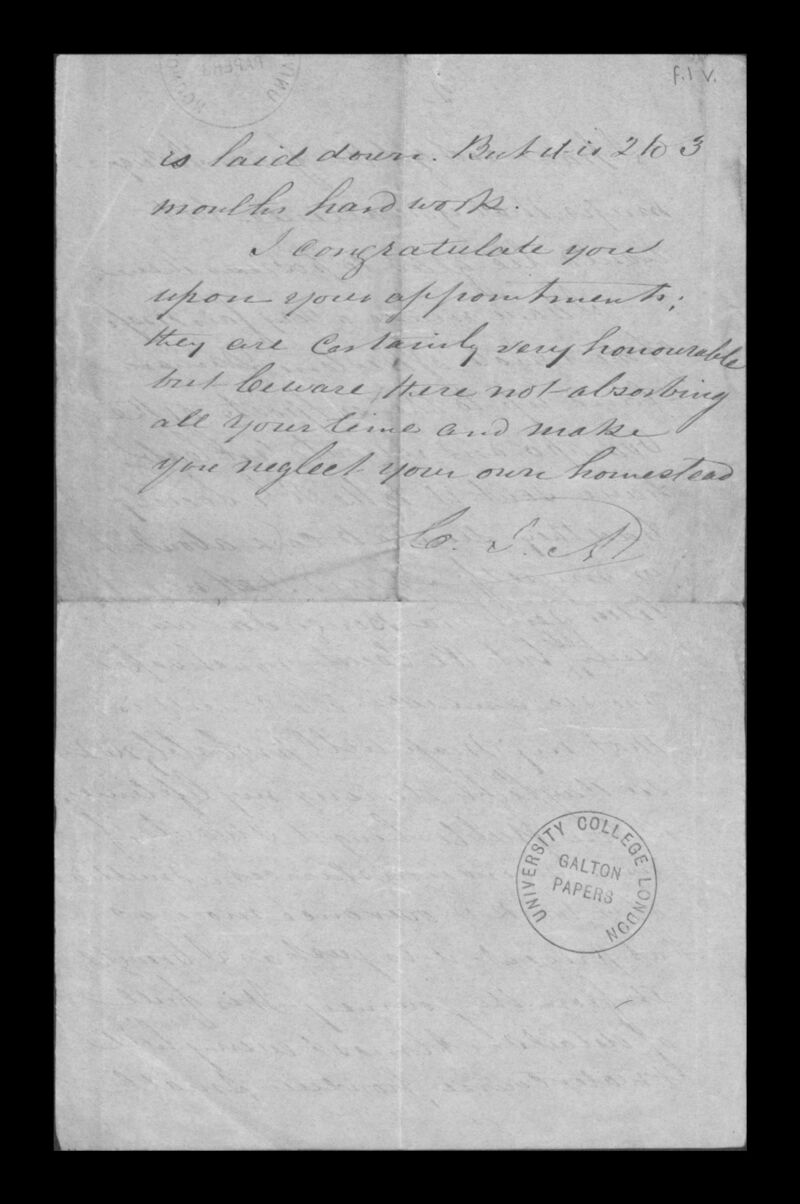 f.1 v.
is laid down. But it is 2 to 3
months hard work.
I congratulate you
upon your appointments;
they are certainly very honourable
but beware there not absorbing
all your time and make
you neglect your own homestead
C. J. A
UNIVERSITY COLLEGE LONDON
GALTON
PAPERS